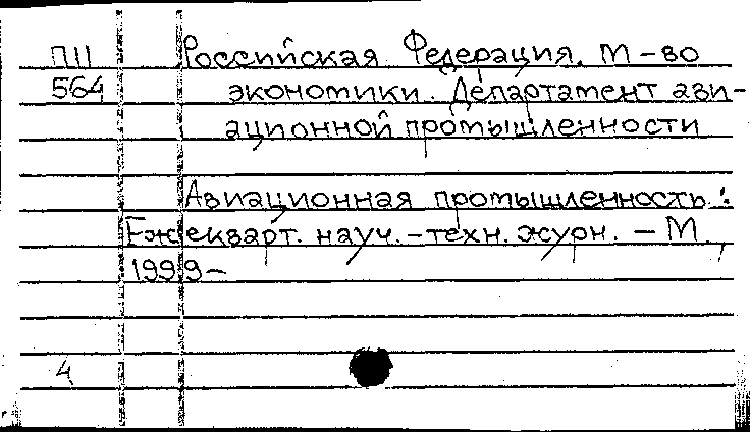 ПШ Российская Федерация. М-во
564 экономики. Департамент ави-
ационной промышленности
Авиационная промышленность :
Ежекварт. науч.-техн. журн. – М.,
1999–
4